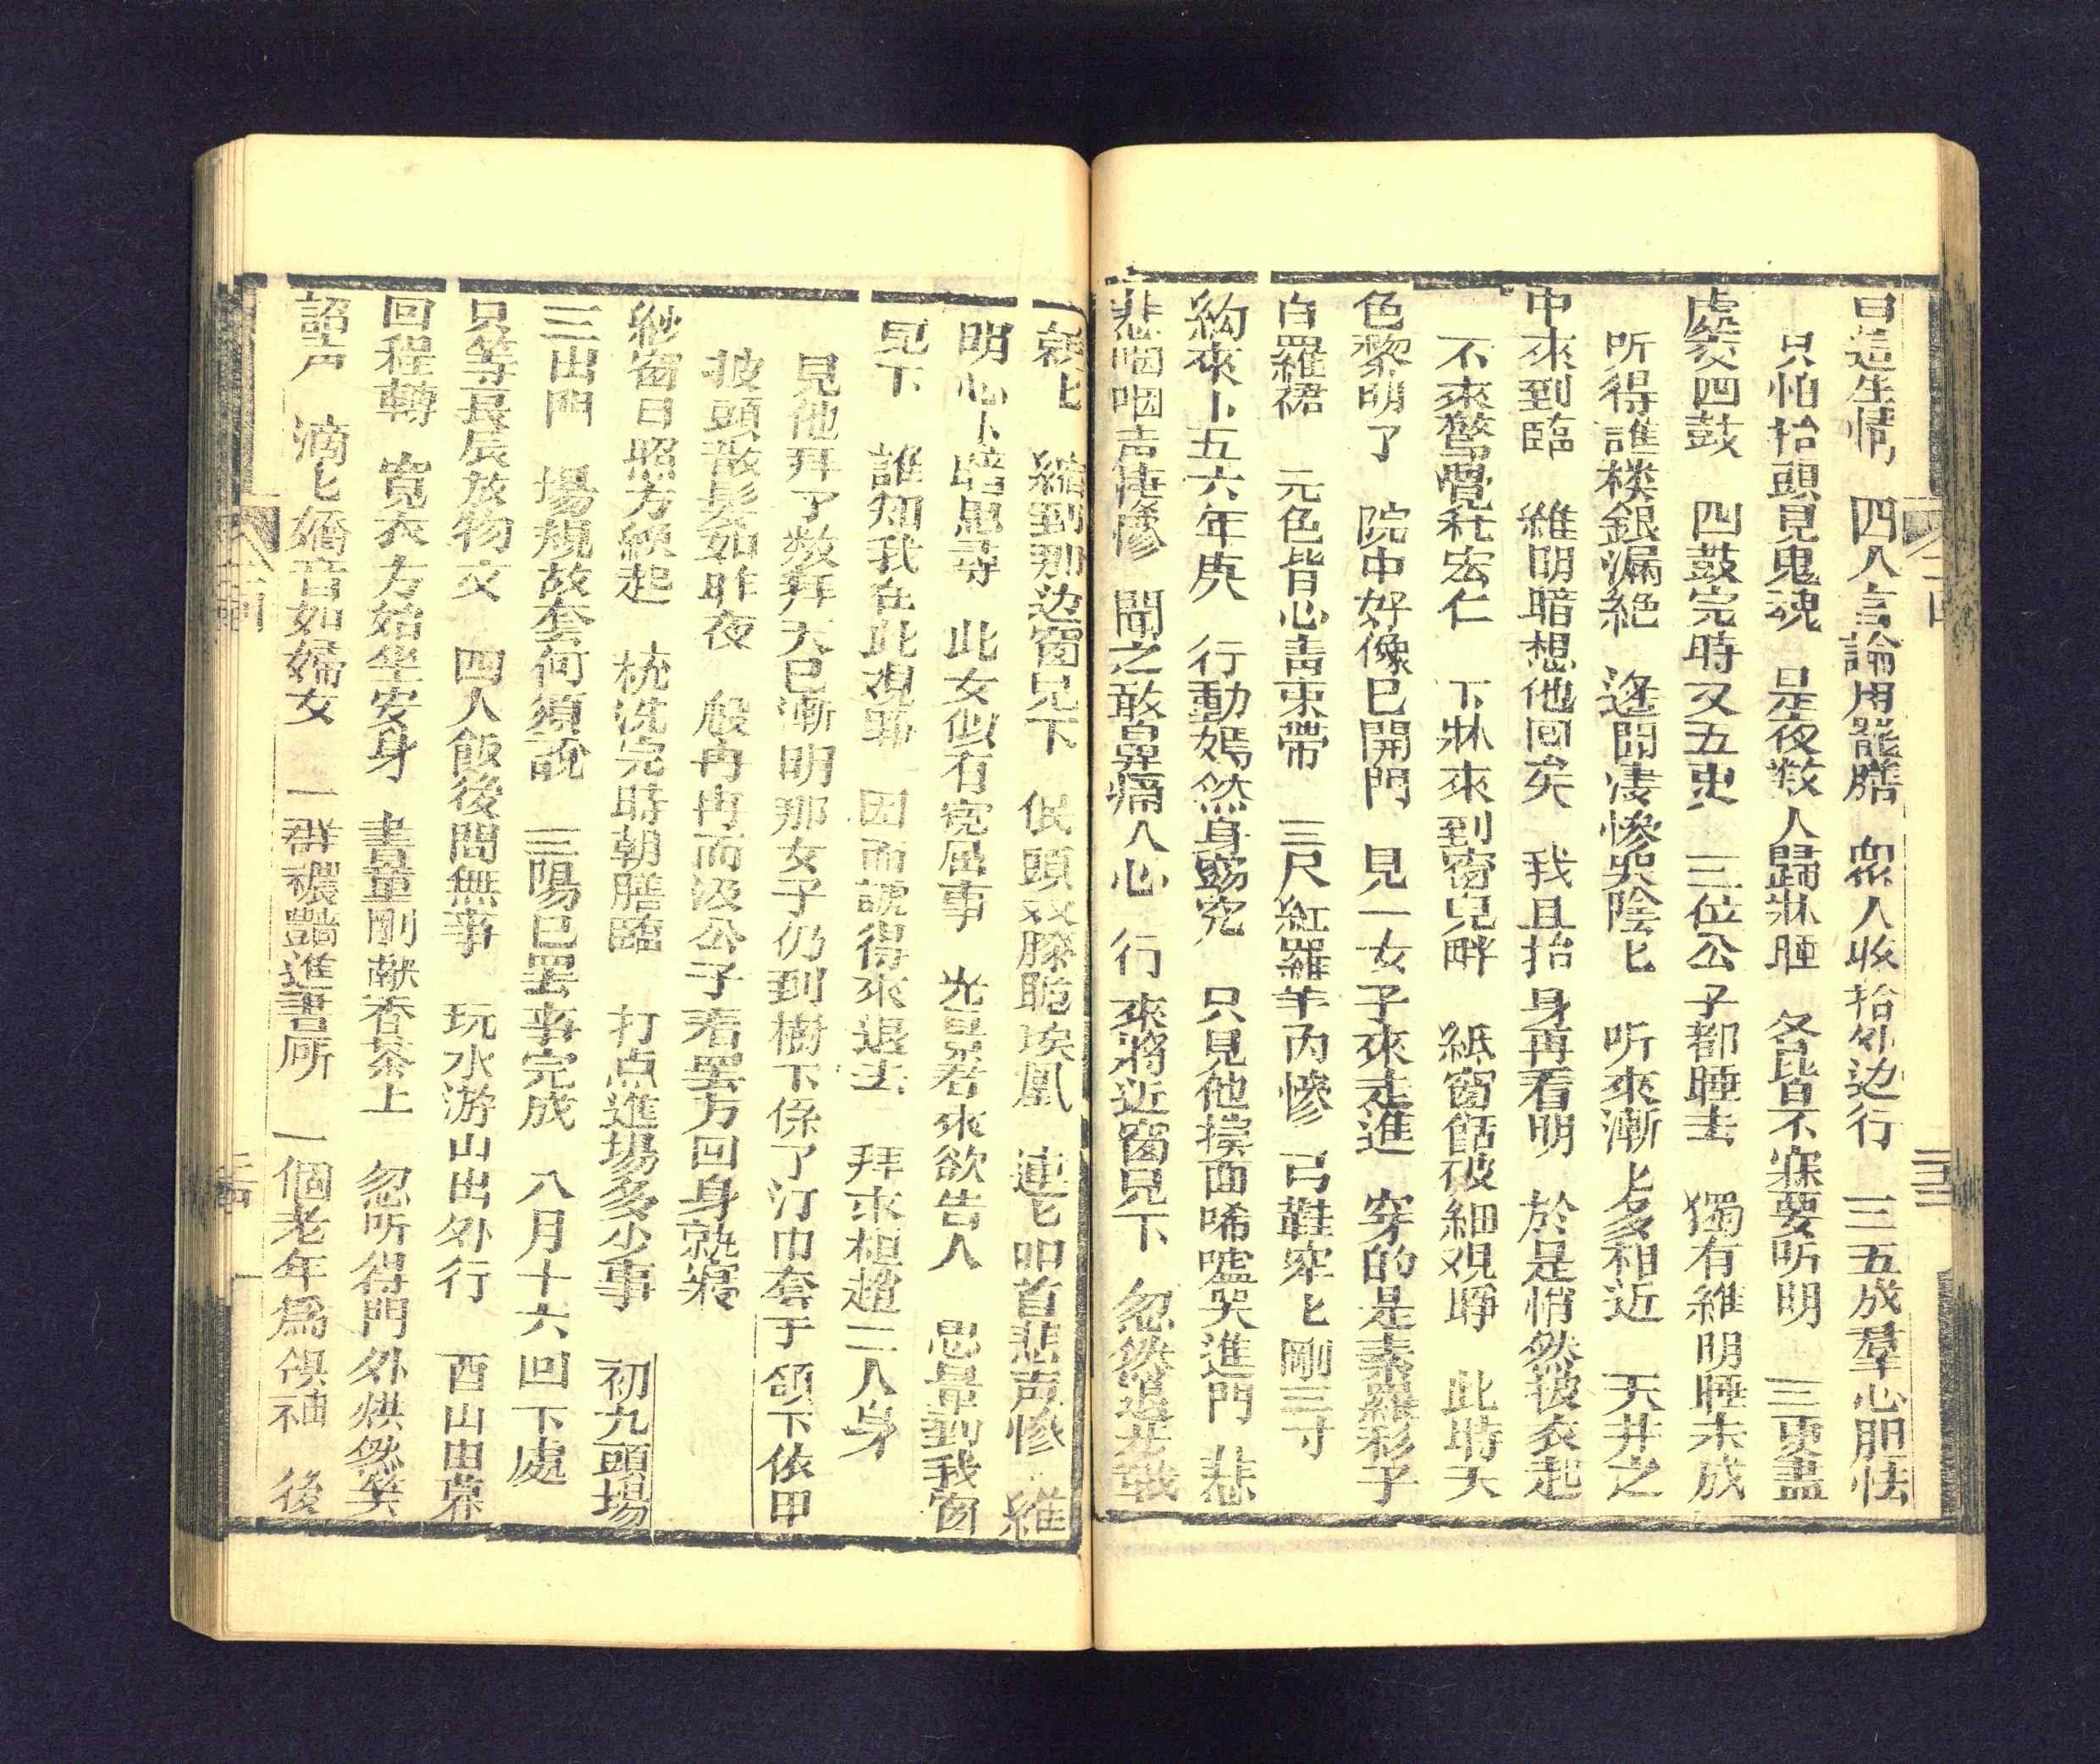 日這生情　四人言論用罷膳　衆人收拾外边行　三五成羣心胆怯
只怕抬頭見鬼魂　是夜数人歸牀睡　各皆不寐要听明　三更盡
處交四鼓　四鼓完時又五更　三位公子都睡去　獨有維明睡未成
听得譙楼銀漏絶　遙聞凄慘哭陰匕　听來漸上多相近　天井之
中來到臨　維明暗想他回矣　我且抬身再看明　於是悄然披衣起
不來驚覺秏宏仁　下牀來到窗兒畔　紙窗餂破細观睁　此時天
色黎明了　院中好像已開門　見一女子來走進　穿的是素羅衫子
白羅裙　元色背心靑束帶　三尺紅羅羊内慘　弓鞋窄匕剛三寸
約來十五六年庚　行動嫣然身
只見他掩面唏嘘哭進門　悲
悲咽咽声悽慘　聞之敢鼻痛人心　行來將近窗兒下　忽然退走戰
兢匕　縮到那边窗兒下　低頭双膝跪埃凰　連匕叩首悲声慘　維
明心下暗思尋　此女似有寃屈事　光景看來欲告人　思量到我窗
児下　誰知我在此观睁　因而諕得來退去　拜求桓趙二人身
見他拜了数拜天已漸明那女子仍到樹下係了汀巾套于頷下依甲
披頭散髮如昨夜　般冉冉而汲公子看罢方回身就寢
紗窗日照方纔起　梳洗完時朝膳臨　打点進場多少事　初九頭場
三出門　場規故套何須說　三陽已罢事完成　八月十六回下處
只等良辰放物文　四人飯後間無事　玩水游山出外行　酉山由暮
回程轉　寬衣方始坐安身　書童剛献香茶上　忽听得門外烘然笑
語声　滴匕嬌音如婦女　一群襛豔進書所　一個老年爲領袖　後